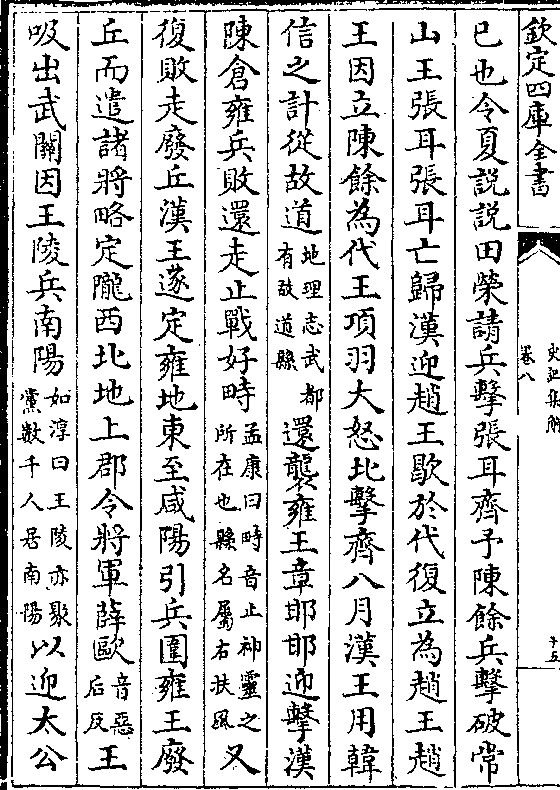 欽定四庫全書
史記集解
卷八
十五
已也令夏説説田榮請兵擊張耳齊予陳餘兵擊破常
山王張耳張耳亡歸漢迎趙王歇於代復立為趙王趙
王因立陳餘為代王項羽大怒北擊齊八月漢王用韓
信之計從故道地理志武都有故道縣還襲雍王章邯邯迎擊漢
陳倉雍兵敗還走止戰好畤孟康曰畤音止神靈之所在也縣名屬右扶風又
復敗走廢丘漢王遂定雍地東至咸陽引兵圍雍王廢
丘而遣諸將略定隴西北地上郡令將軍薛歐音惡后反王
吸出武關因王陵兵南陽如淳曰王陵亦聚黨數千人居南陽以迎太公